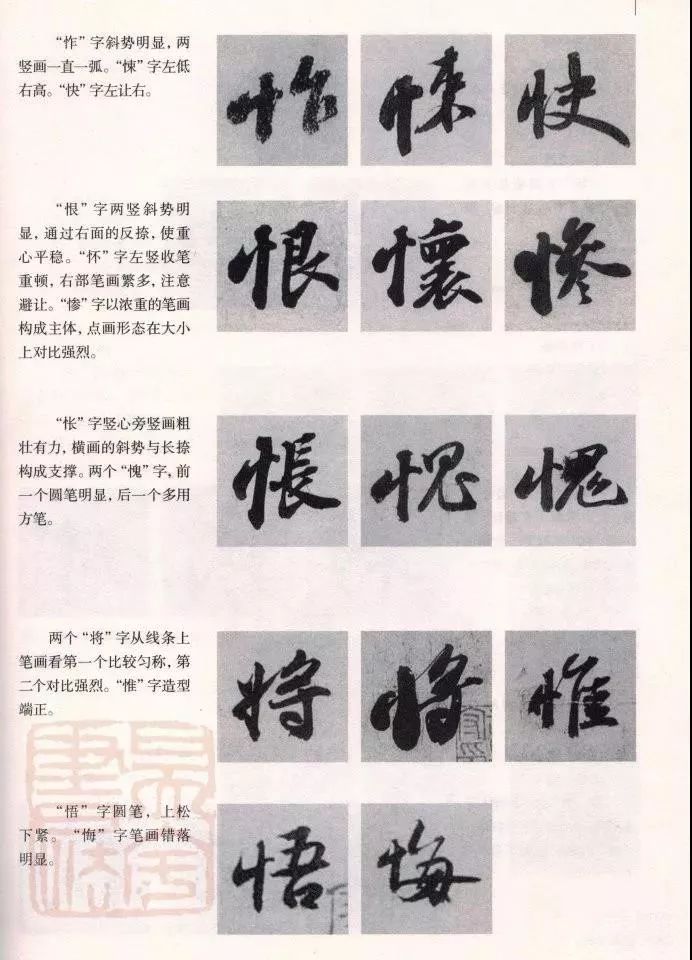 “怍”字斜势明显，两
竖画一直一弧。“悚”字左低
右高。“快”字左让右。
怍 悚 快
“恨”字两竖斜势明
显，通过右面的反捺，使重
心平稳。“怀”字左竖收笔
重顿，右部笔画繁多，注意
避让。“惨”字以浓重的笔画
构成主体，点画形态在大小
上对比强烈。
恨 懷 慘
“怅”字竖心旁竖画粗
壮有力，横画的斜势与长捺
构成支撑。两个“愧”字，前
一个圆笔明显，后一个多用
方笔。
悵 愧 愧
两个“将”字从线条上
笔画看第一个比较匀称，第
二个对比强烈。“惟”字造型
端正。
将 将 惟
“悟”字圆笔，上松
下紧。“悔”字笔画错落
明显。
悟 悔